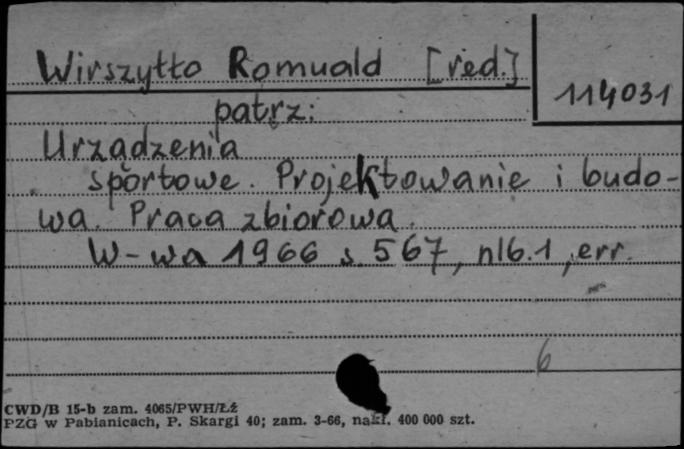 Wirszyłło Romuald [red.]
114031
patrz:
Urządzenia
sportowe. Projektowanie i budo-
wa. Praca zbiorowa.
W-wa 1966 s. 567, nlb. 1, err.
6
CWD/B 15-b zam. 4065/PWH/Łż
PZG w Pabianicach, P. Skargi 40; zam. 3-66, nakł. 400 000 szt.